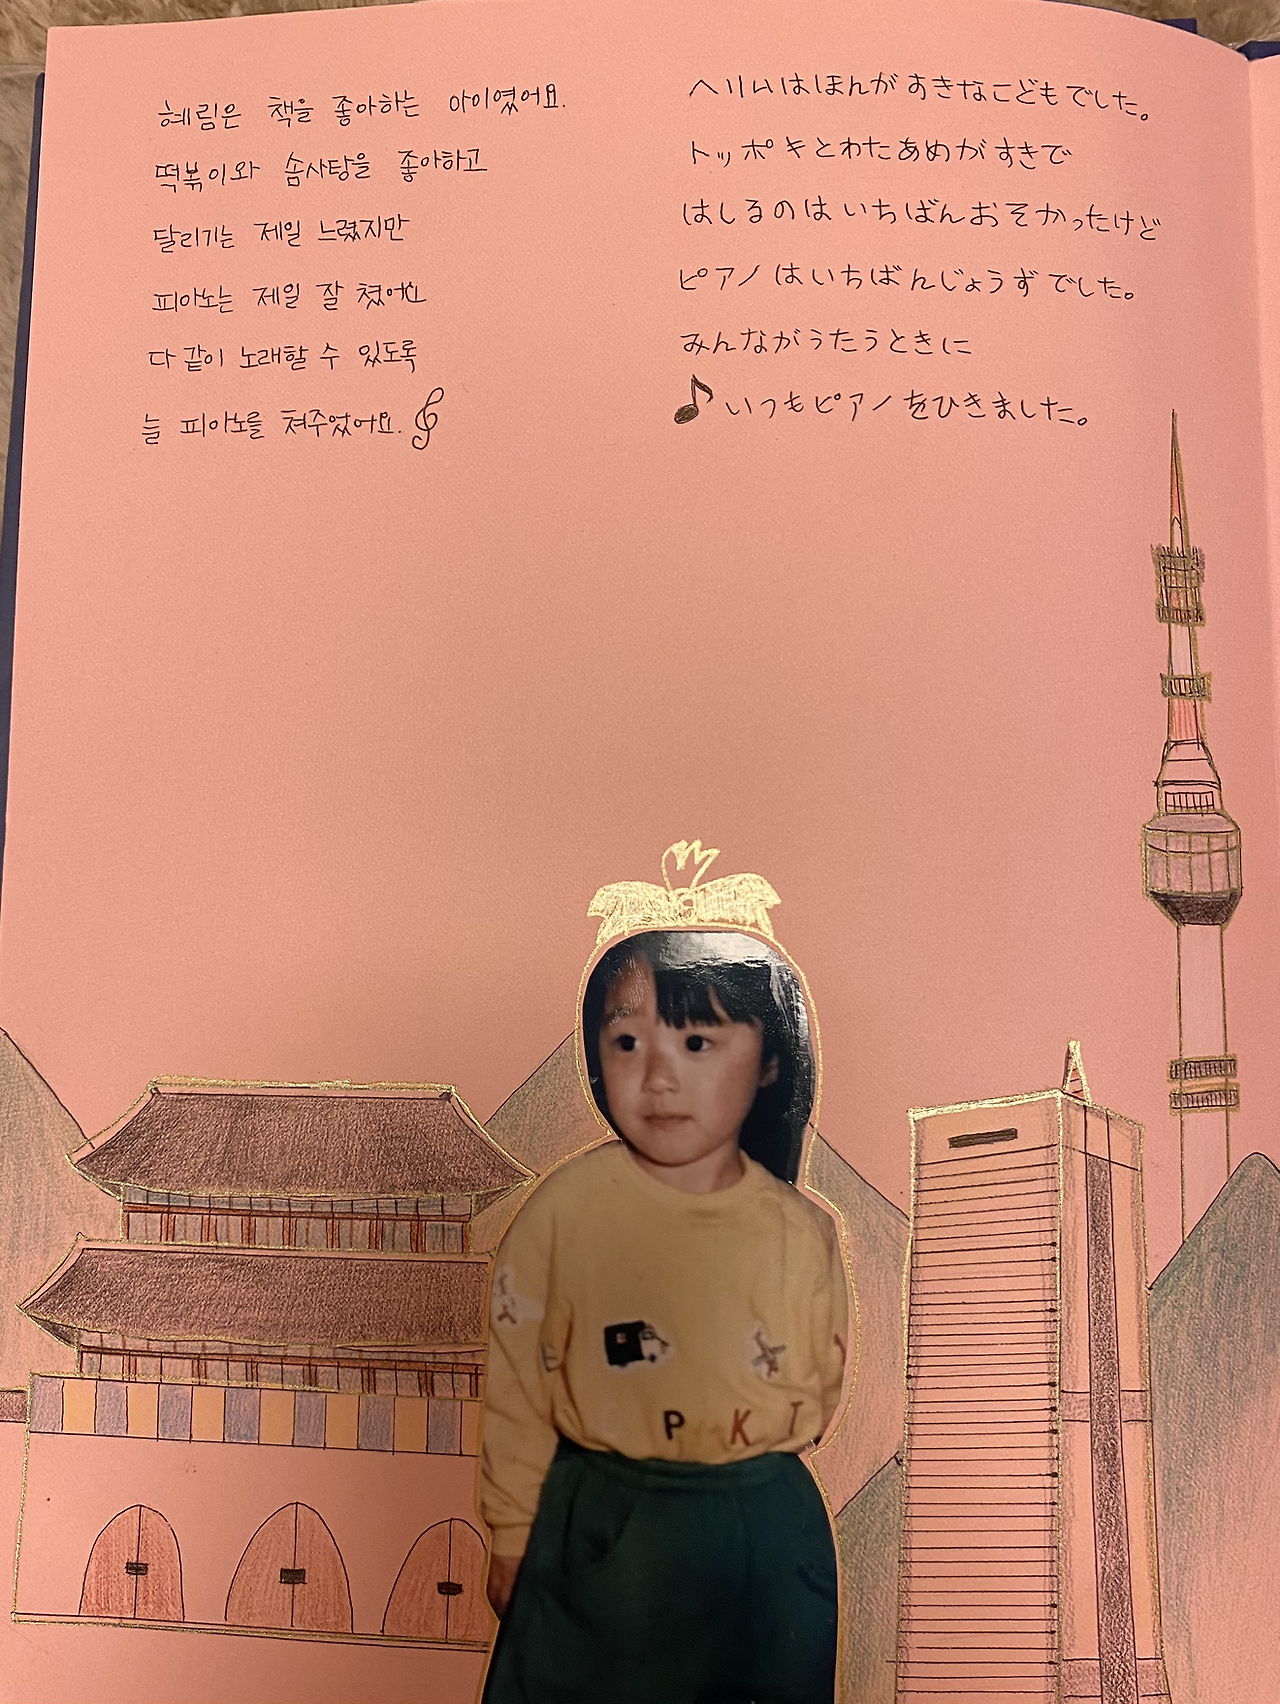 혜림은 책을 좋아하는 아이였어요.
떡볶이와 솜사탕을 좋아하고
달리기는 제일 느렸지만
피아노는 제일 잘 쳤어요
다 같이 노래할 수 있도록
늘 피아노를 쳐주었어요.
ヘリムはほんがすきなこどもでした。
トッポキとわたあめがすきで
はしるのはいちばんおそかったけど
ピアノはいちばんじょうずでした。
みんながうたうときに
いつもピアノをひきました。
P K I